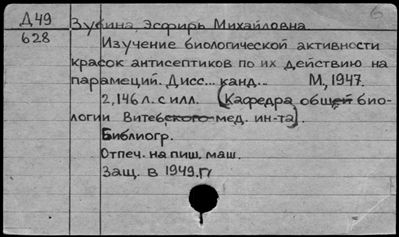 6
Д49 Зубина, Эсфирь Михайловна
628 Изучение биологической активности
красок антисептиков по их действию на
парамеций. Дисс... канд... М, 1947.
2,146 л. с илл. (Кафедра общей био-
логии Витебского мед. ин-та).
Библиогр.
Отпеч. на пиш. маш.
Защ. в 1949.г